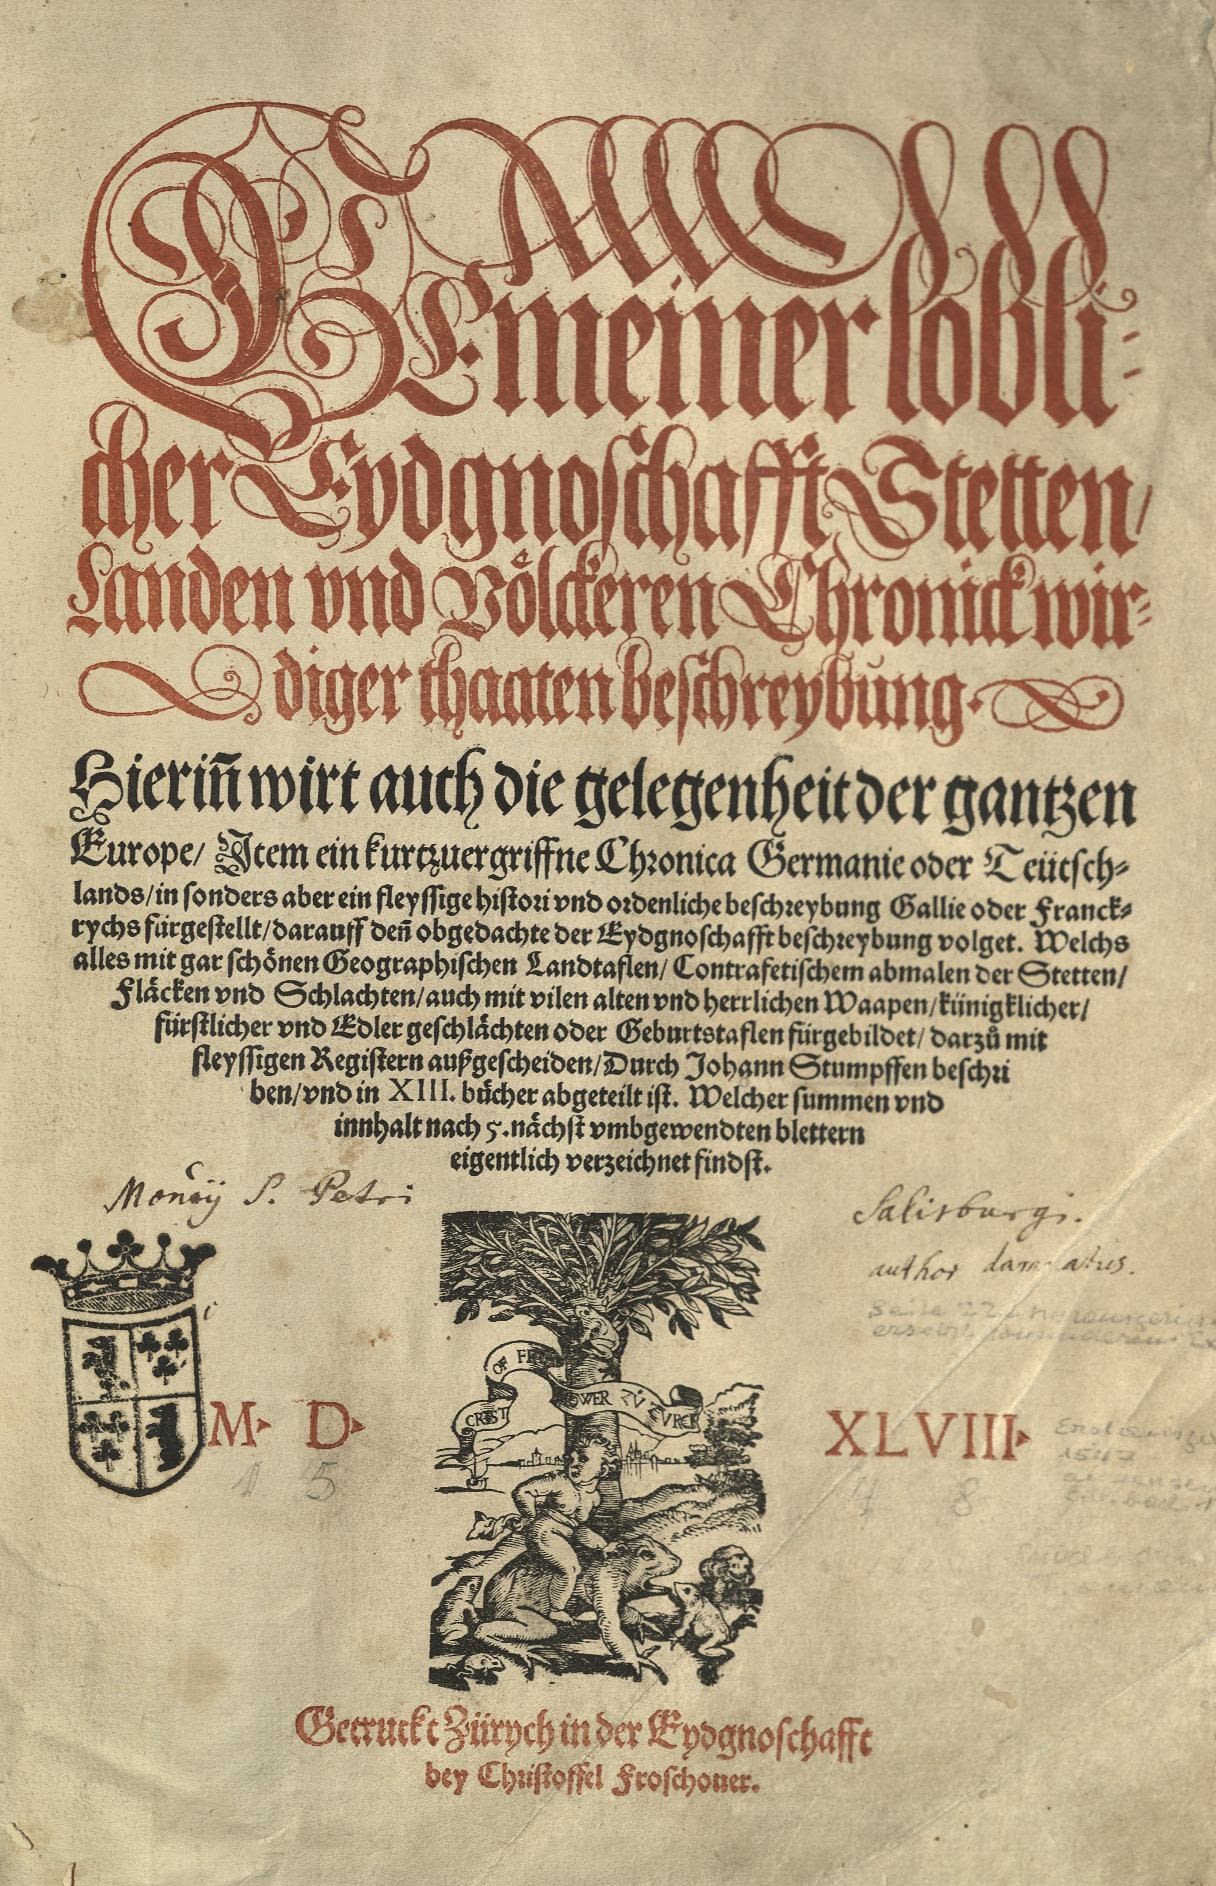 GEmeiner lobli-
cher Eydgnoschafft Stetten/
Landen vnd Völckeren Chronick wir-
diger thaaten beschreybung.
Hieriñ wirt auch die gelegenheit der gantzen
Europe/ Item ein kurtzuergriffne Chronica Germanie oder Teütsch-
lands/in sonders aber ein fleyssige histori vnd ordenliche beschreybung Gallie oder Franck-
rychs fürgestellt/darauff deñ obgedachte der Eydgnoschafft beschreybung volget. Welchs
alles mit gar schönen Geographischen Landtaflen/ Contrafetischem abmalen der Stetten/
Fläcken vnd Schlachten/auch mit vilen alten vnd herrlichen Waapen/künigklicher/
fürstlicher vnd Edler geschlächten oder Geburtstaflen fürgebildet/ darzů mit
fleyssigen Registern außgescheiden/Durch Johann Stumpffen beschri
ben/vnd in XIII. bücher abgeteilt ist. Welcher summen vnd
innhalt nach 5.nächst vmbgewendten blettern
eigentlich verzeichnet findst.
S. Petri
Salisburgi.
author damnatus.
CRIST OF FR OWER ZV ZVRCH
M. D. XLVIII.
1 5 4 8
1547
Getruckt Zürych in der Eydgnoschafft
bey Christoffel Froschouer.